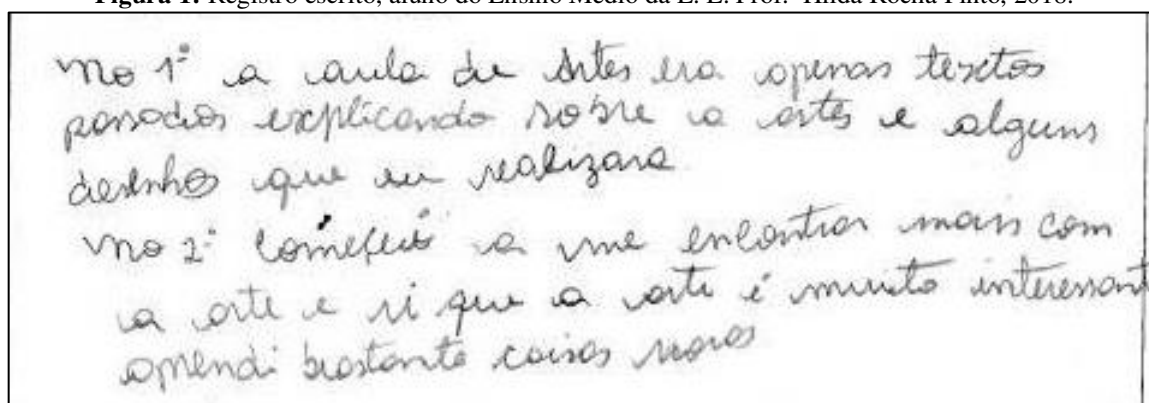 Figura 1: Registro escrito, aluno do Ensino Médio da E. E. Prof.ª Hilda Rocha Pinto, 2018.
no 1º a aula de Artes era apenas textos
passados explicando sobre a artes e alguns
desenhos que eu realizava
no 2º comecei a me encontrar mais com
a arte e vi que a arte é muito interessant
aprendi bastante coisas novas